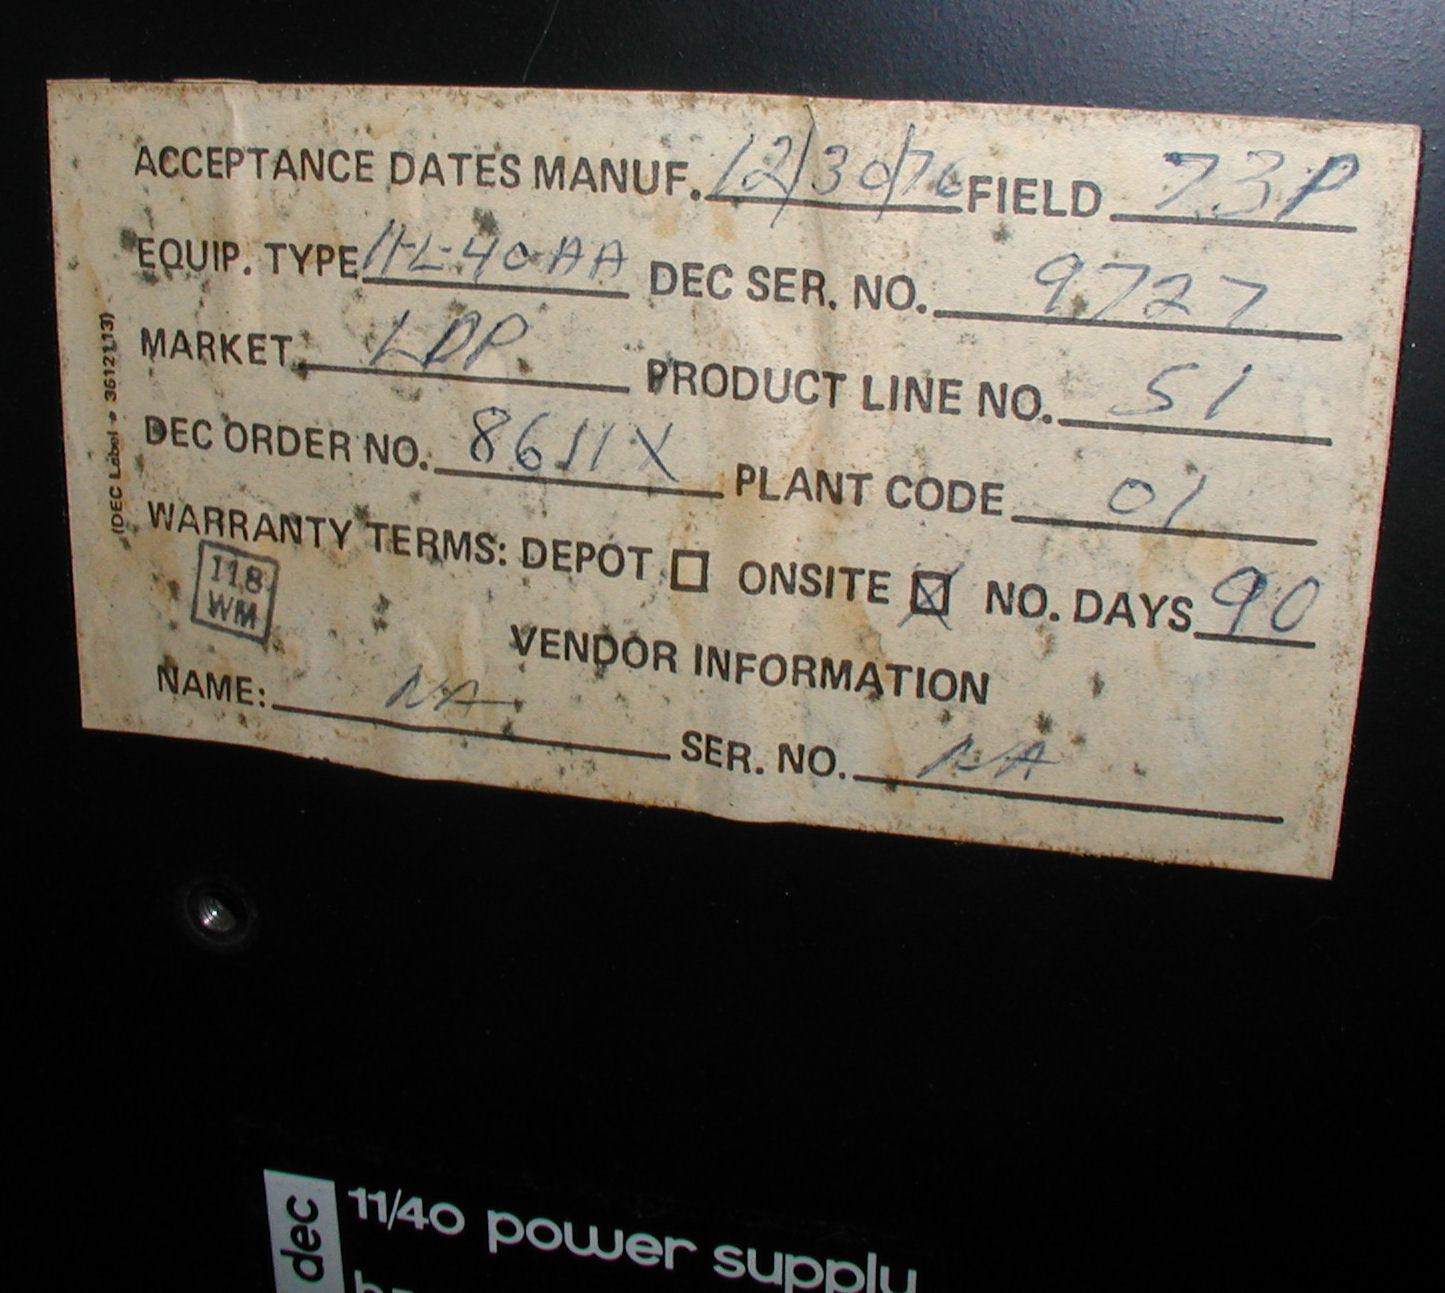 ACCEPTANCE DATES MANUF. 12/30/76 FIELD 73P
EQUIP. TYPE 11-L-40AA DEC SER. NO. 9727
MARKET LDP PRODUCT LINE NO. 51
DEC ORDER NO. 8611X PLANT CODE 01
WARRANTY TERMS: DEPOT ☐ ONSITE ☒ NO. DAYS 90
118
WM
VENDOR INFORMATION
NAME: NA SER. NO. NA
(DEC Label 3612113)
dec
11/40 power supply